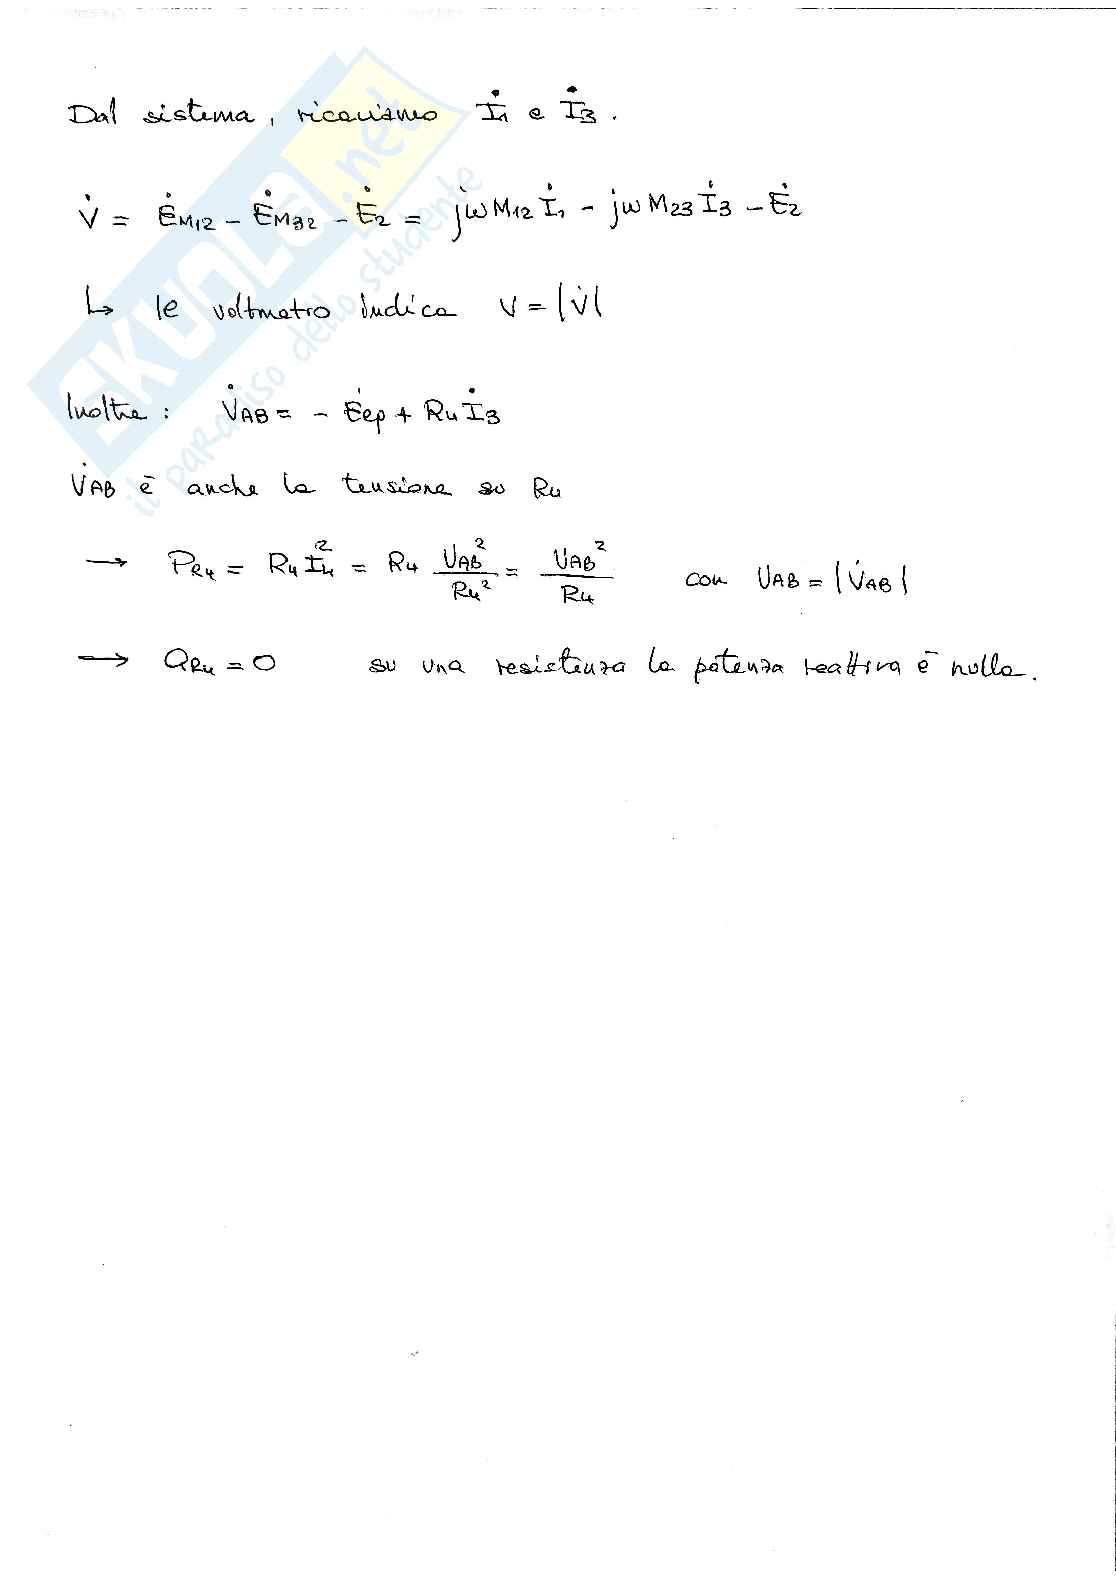 Dal sistema, ricaviamo İ1 e İ3.
V̇ = ĖM12 - ĖM32 - Ė2 = jωM12 İ1 - jωM23 İ3 - Ė2
↳ le voltmetro indica V = |V̇|
Inoltre: V̇AB = - Ėep + R4 İ3
V̇AB è anche la tensione su R4
→ PR4 = R4 I4² = R4 VAB²/R4² = VAB²/R4 con VAB = |V̇AB|
→ QR4 = 0 su una resistenza la potenza reattiva è nulla.
SKUOLA.net
il paradiso dello studente